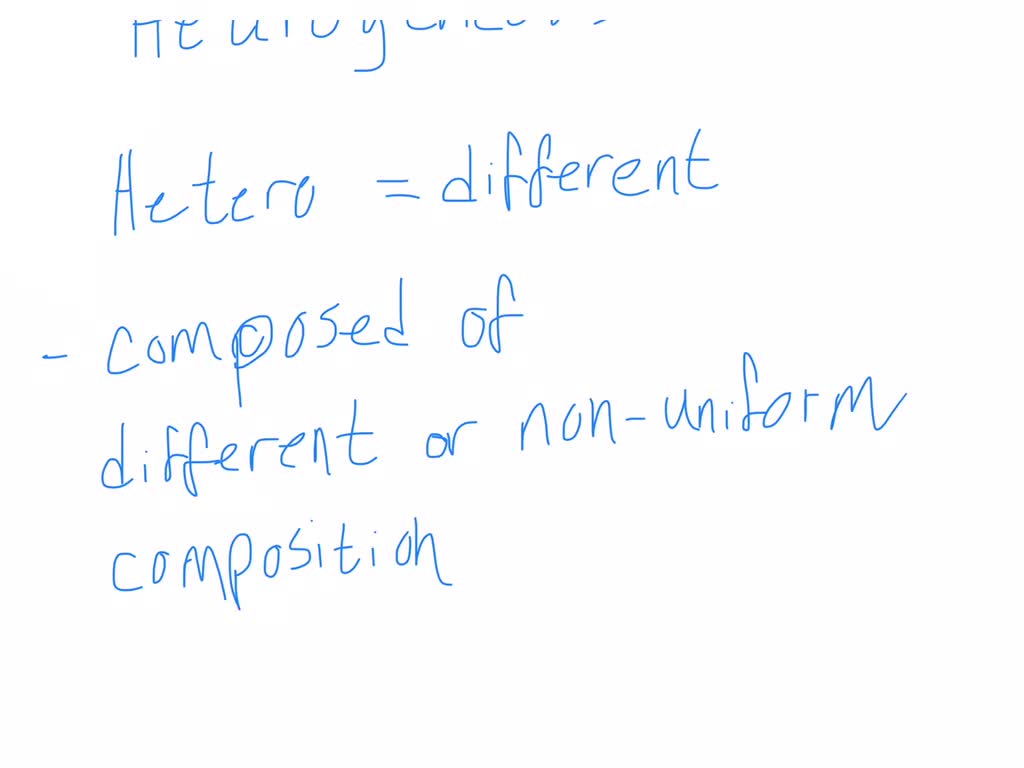 Hetero = different
- composed of
different or non-uniform
composition